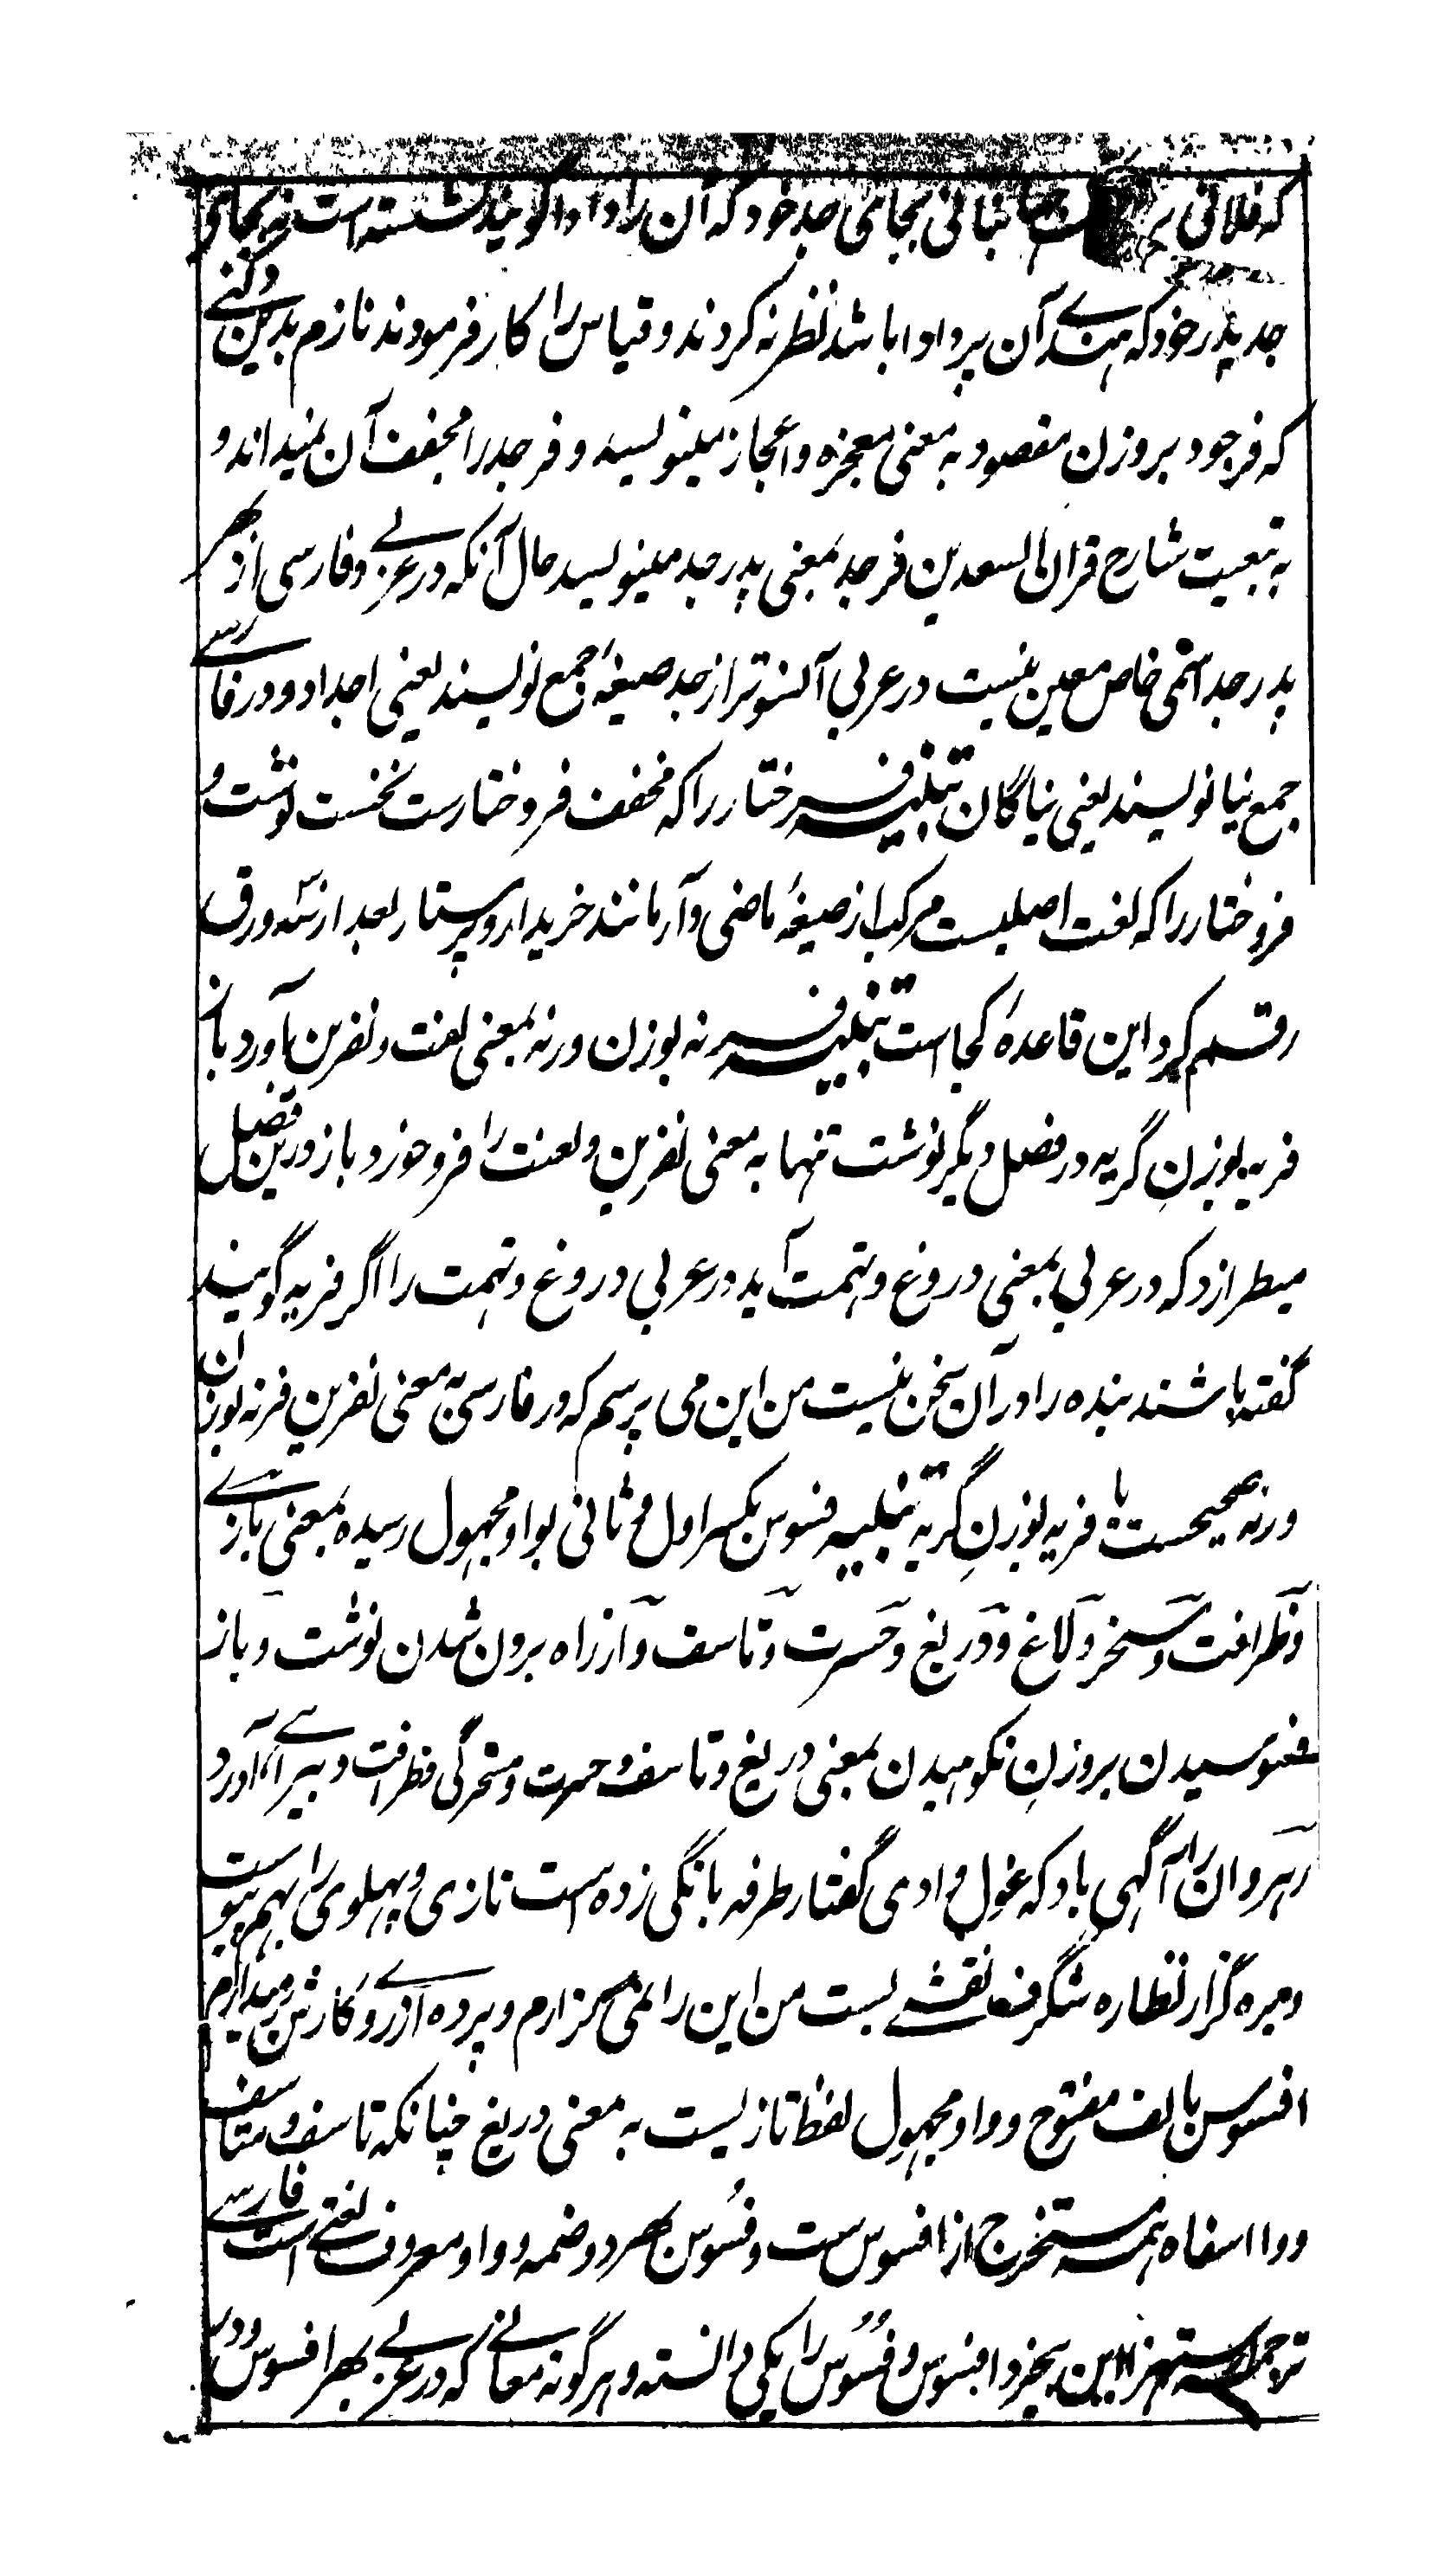 که فلانی بر جهانبانی بجای جد خود که آن را دادا گویند نشسته است نه بجای
جد پدر خود که هندی آن پردادا باشد نظر نه کردند و قیاس را کار فرمودند نازم بدین دکنی
که فرجود بروزن مقصود به معنی معجزه و اعجاز مینویسد و فرجد را مخفف آن نمیداند و
به تبعیت شارح قران السعدین فرجد بمعنی پدر جد مینویسد حال آنکه در عربی و فارسی از بهر
پدر جد اسمی خاص معین نیست در عربی آنسوتر از جد صیغهٔ جمع نویسند یعنی اجداد و در فارسی
جمع نیا نویسند یعنی نیاگان تنبیه فرختار را که مخفف فروختارست نخست نوشت و
فروختار را که لغت اصلیست مرکب از صیغهٔ ماضی و آر مانند خریدار و پرستار بعد از سه ورق
رقم کرد این قاعدهٔ کجاست تنبیه فرنه بوزن ورنه بمعنی لعنت و نفرین آورد باز
فریه بوزن گریه در فصل دیگر نوشت تنها به معنی نفرین و لعنت را فرو خورد و باز درین فصل
میطرازد که در عربی بمعنی دروغ و تهمت آید در عربی دروغ و تهمت را اگر فریه گویند
گفته باشند بنده را در آن سخن نیست من این می پرسم که در فارسی به معنی نفرین فرنه بوزن
ورنه صحیحست یا فریه بوزن گریه تنبیه فسوس بکسر اول و ثانی بواو مجهول رسیده بمعنی بازی
و ظرافت و سخر و لاغ و دریغ و حسرت و تاسف و از راه برون شدن نوشت و باز
فسوسیدن بروزن نکوهیدن بمعنی دریغ و تاسف و حسرت و مسخرگی و ظرافت و بیراهی آورد
رهروان را آگهی باد که غول وادی گفتار طرفه بانگی زده است تازی و پهلوی را بهم پیوست
و میره گزار نظاره شگرف نقشی بست من این را نمی گزارم و پرده از روی کارش برمیدارم
افسوس بالف مفتوح و واو مجهول لفظ تازیست به معنی دریغ چنانکه تاسف و متاسف
و وا اسفاه همه مستخرج از افسوس ست و فسوس بهر دو ضمه و واو معروف لغتی است فارسی
ترجمه استهزا این بیخرد افسوس و فسوس را یکی دانسته و هرگونه معانی که در عربی بهر افسوس و در